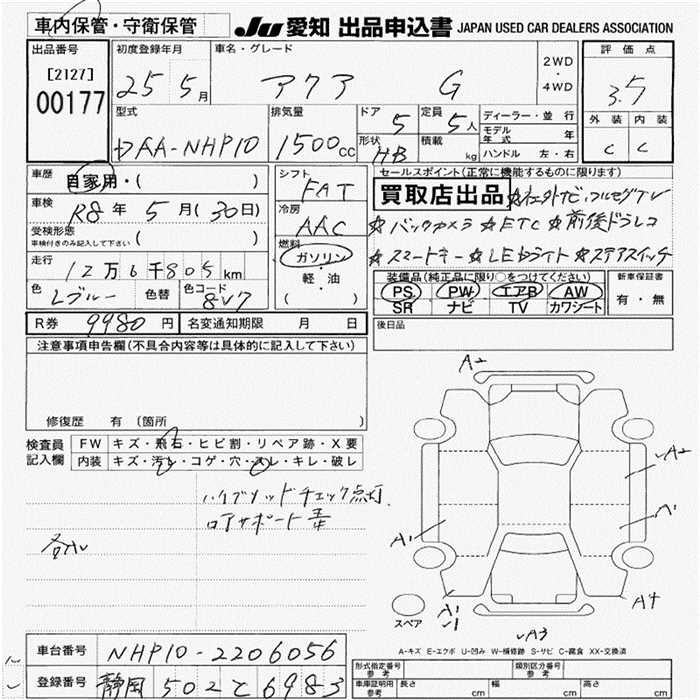 車内保管・守衛保管
JU 愛知 出品申込書 JAPAN USED CAR DEALERS ASSOCIATION
出品番号 初度登録年月 車名・グレード 2WD・4WD 評価点
[2127] 00177 25 5月 アクア G 3.5
外装 内装
C C
型式 排気量 ドア 5 定員 5人 ディーラー・並行
DAA-NHP10 1500cc 形状 HB 積載 kg モデル年式 年
ハンドル 左・右
車歴 自家用・( ) シフト FAT セールスポイント(正常に機能するものに限ります)
買取店出品 ☆社外ナビ・フルセグTV
車検 R8年 5月(30日) 冷房 AAC ☆バックカメラ ☆ETC ☆前後ドラレコ
受検形態 車検付きのみ記入して下さい ( ) 燃料 ガソリン・軽・油 ( ) ☆スマートキー ☆LEDライト ☆ステアスイッチ
走行 12万6千805km 装備品(純正品に限り○をつけてください) 新車保証書
色 Lブルー 色替 色コード 8V7 PS PW エアB AW 有・無
SR ナビ TV カワシート
R券 9980円 名変通知期限 月 日 後日品
注意事項申告欄(不具合内容等は具体的に記入して下さい)
修復歴 有 〔箇所 〕
検査員記入欄 FW キズ・飛石・ヒビ割・リペア跡・X要
内装 キズ・汚レ・コゲ・穴・スレ・キレ・破レ
ハイブリッドチェック点灯
ロアサポート
A2
A2
A1
A1
A4
A1
A3
スペア
A-キズ E-エクボ U-凹み W-補修跡 S-サビ C-腐食 XX-交換済
車台番号 NHP10-2206056
登録番号 静岡 502 と 6983
形式指定番号 参考 類別区分番号 参考
車庫証明用 参考 長さ cm 幅 cm 高さ cm